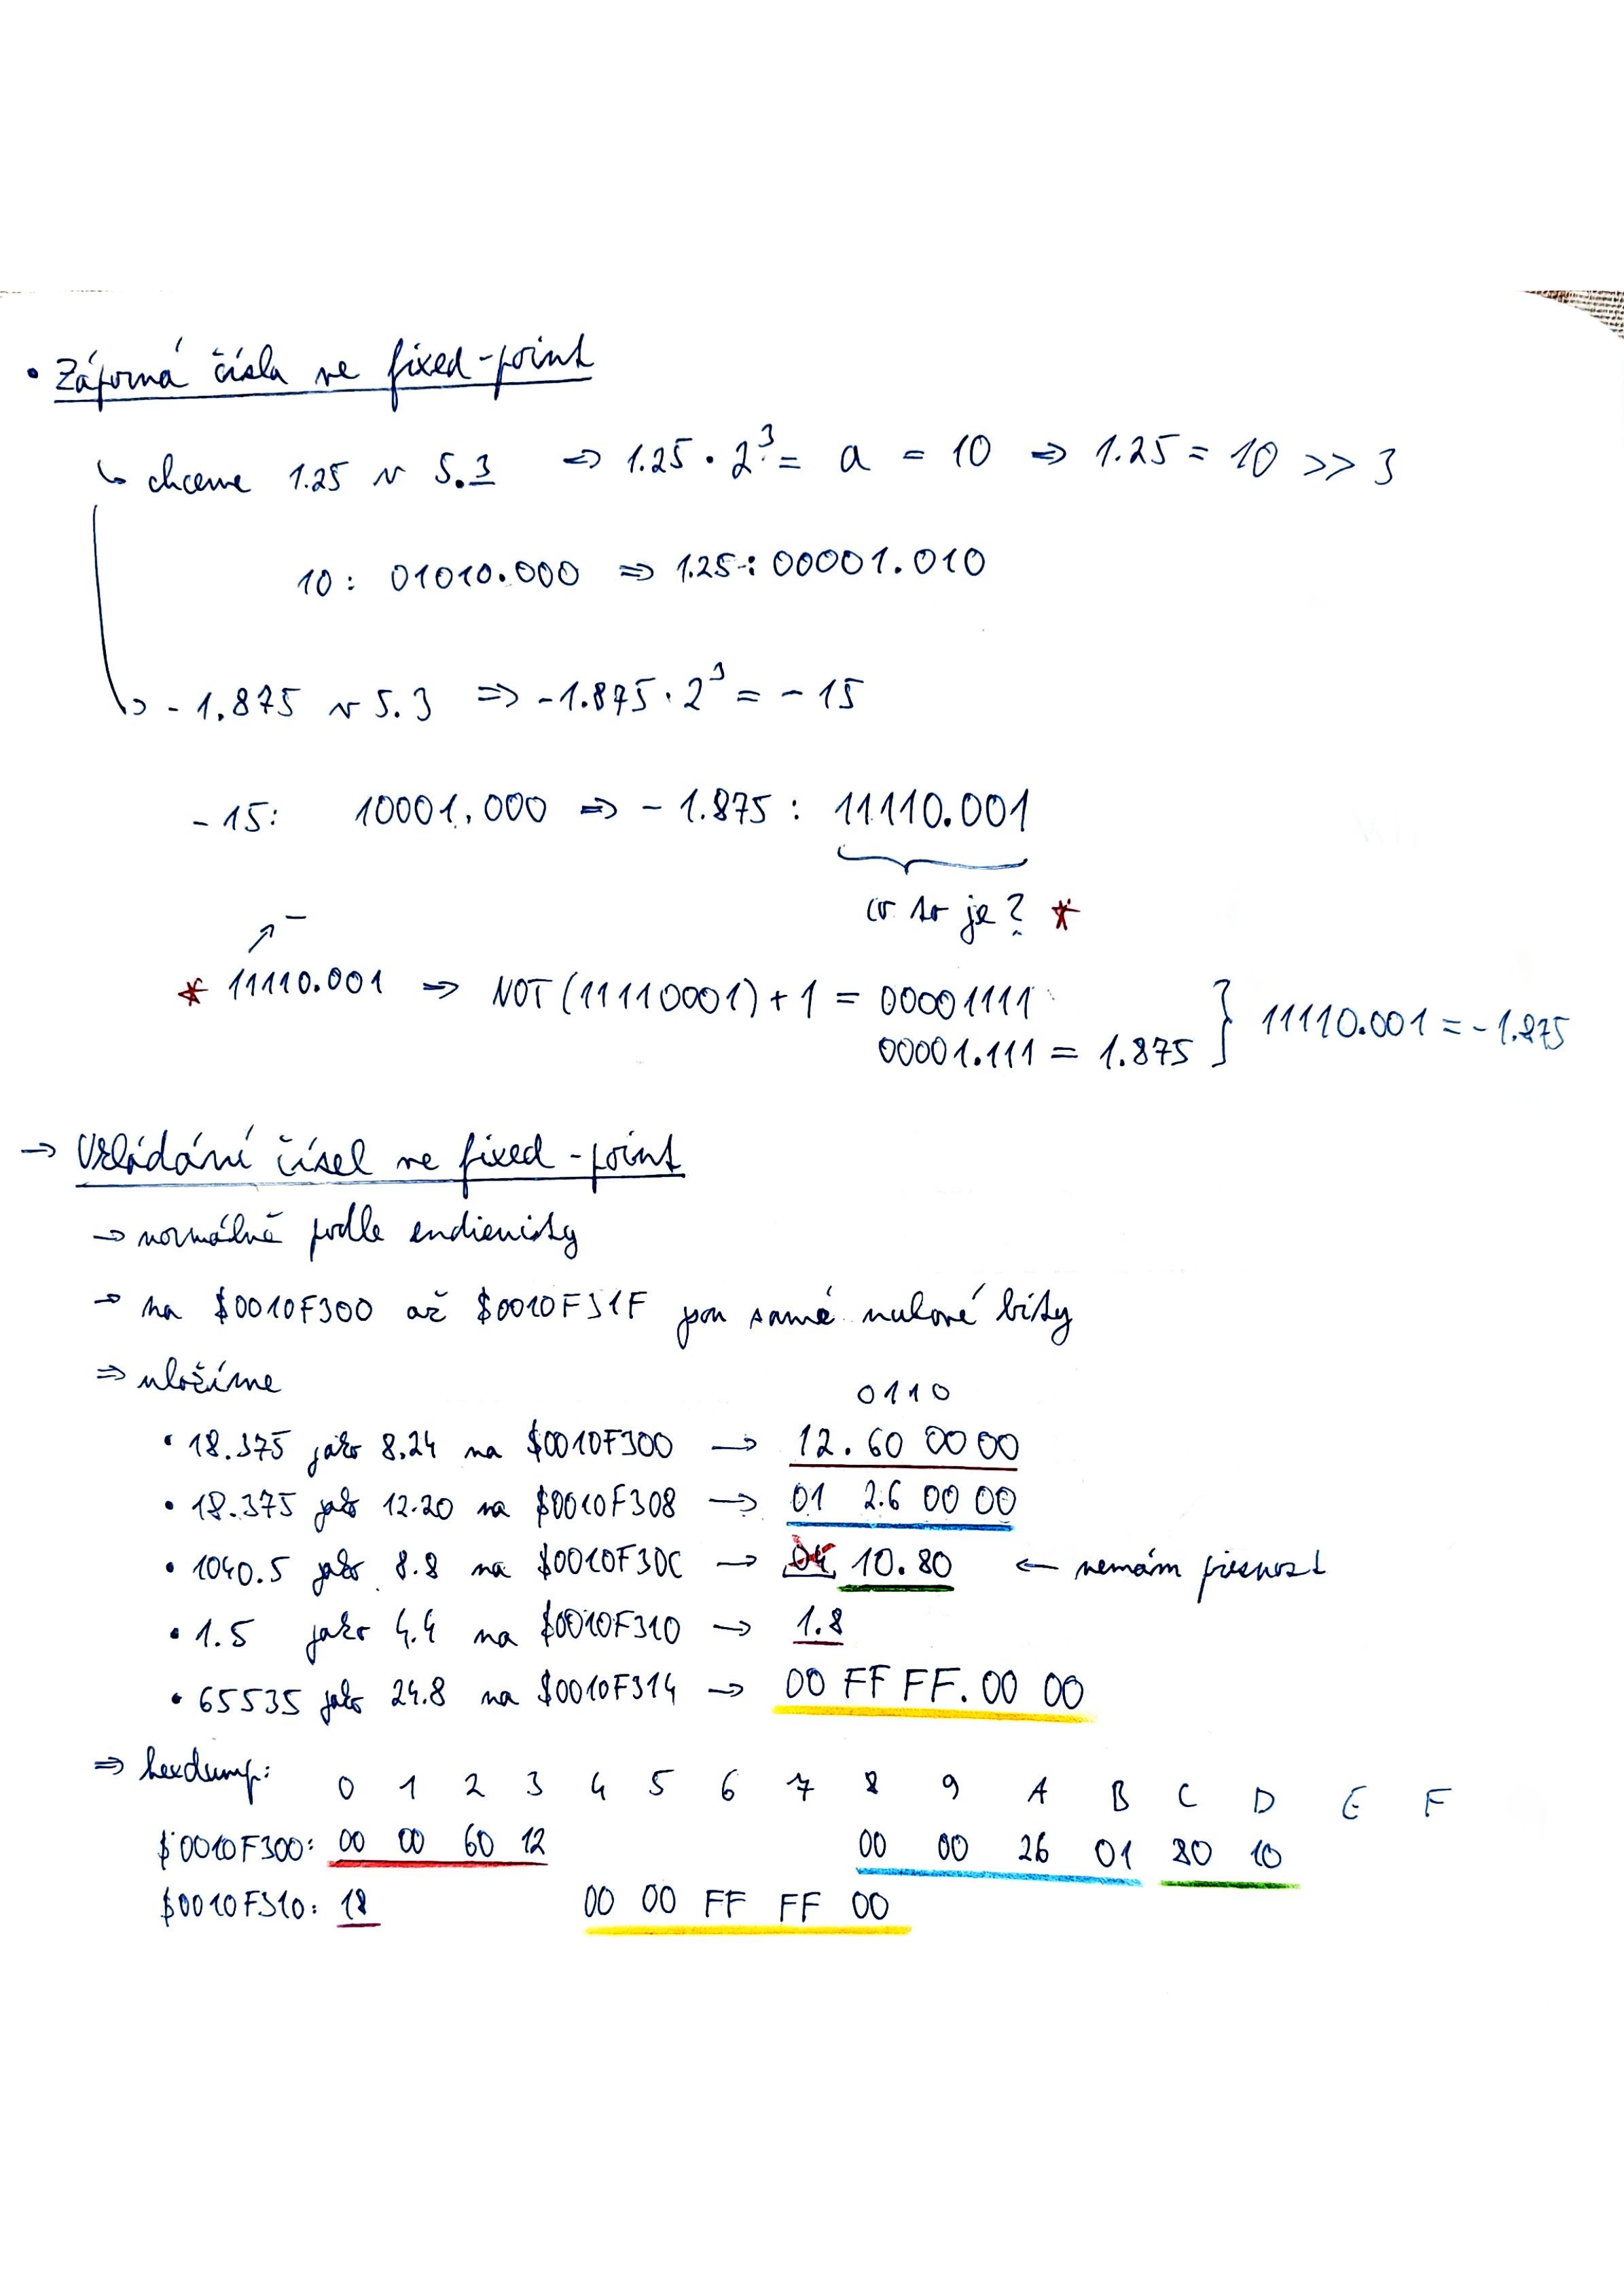 • Záporná čísla ve fixed-point
↳ chceme 1.25 v 5.3 => 1.25 · 2³ = a = 10 => 1.25 = 10 >> 3
10: 01010.000 => 1.25: 00001.010
↳ -1.875 v 5.3 => -1.875 · 2³ = -15
-15: 10001.000 => -1.875 : 11110.001
co to je? *
↗ −
* 11110.001 => NOT(11110001) + 1 = 00001111
00001.111 = 1.875 } 11110.001 = -1.875
→ Ukládání čísel ve fixed-point
→ normálně podle endienity
→ na $0010F300 až $0010F31F jsou samé nulové bity
=> uložíme
0110
• 18.375 jako 8.24 na $0010F300 → 12.60 00 00
• 18.375 jako 12.20 na $0010F308 → 01 2.6 00 00
• 1040.5 jako 8.8 na $0010F30C → 04 10.80 ← nemám přesnost
• 1.5 jako 4.4 na $0010F310 → 1.8
• 65535 jako 24.8 na $0010F314 → 00 FF FF.00 00
=> hexdump: 0 1 2 3 4 5 6 7 8 9 A B C D E F
$0010F300: 00 00 60 12 00 00 26 01 80 10
$0010F310: 18 00 00 FF FF 00